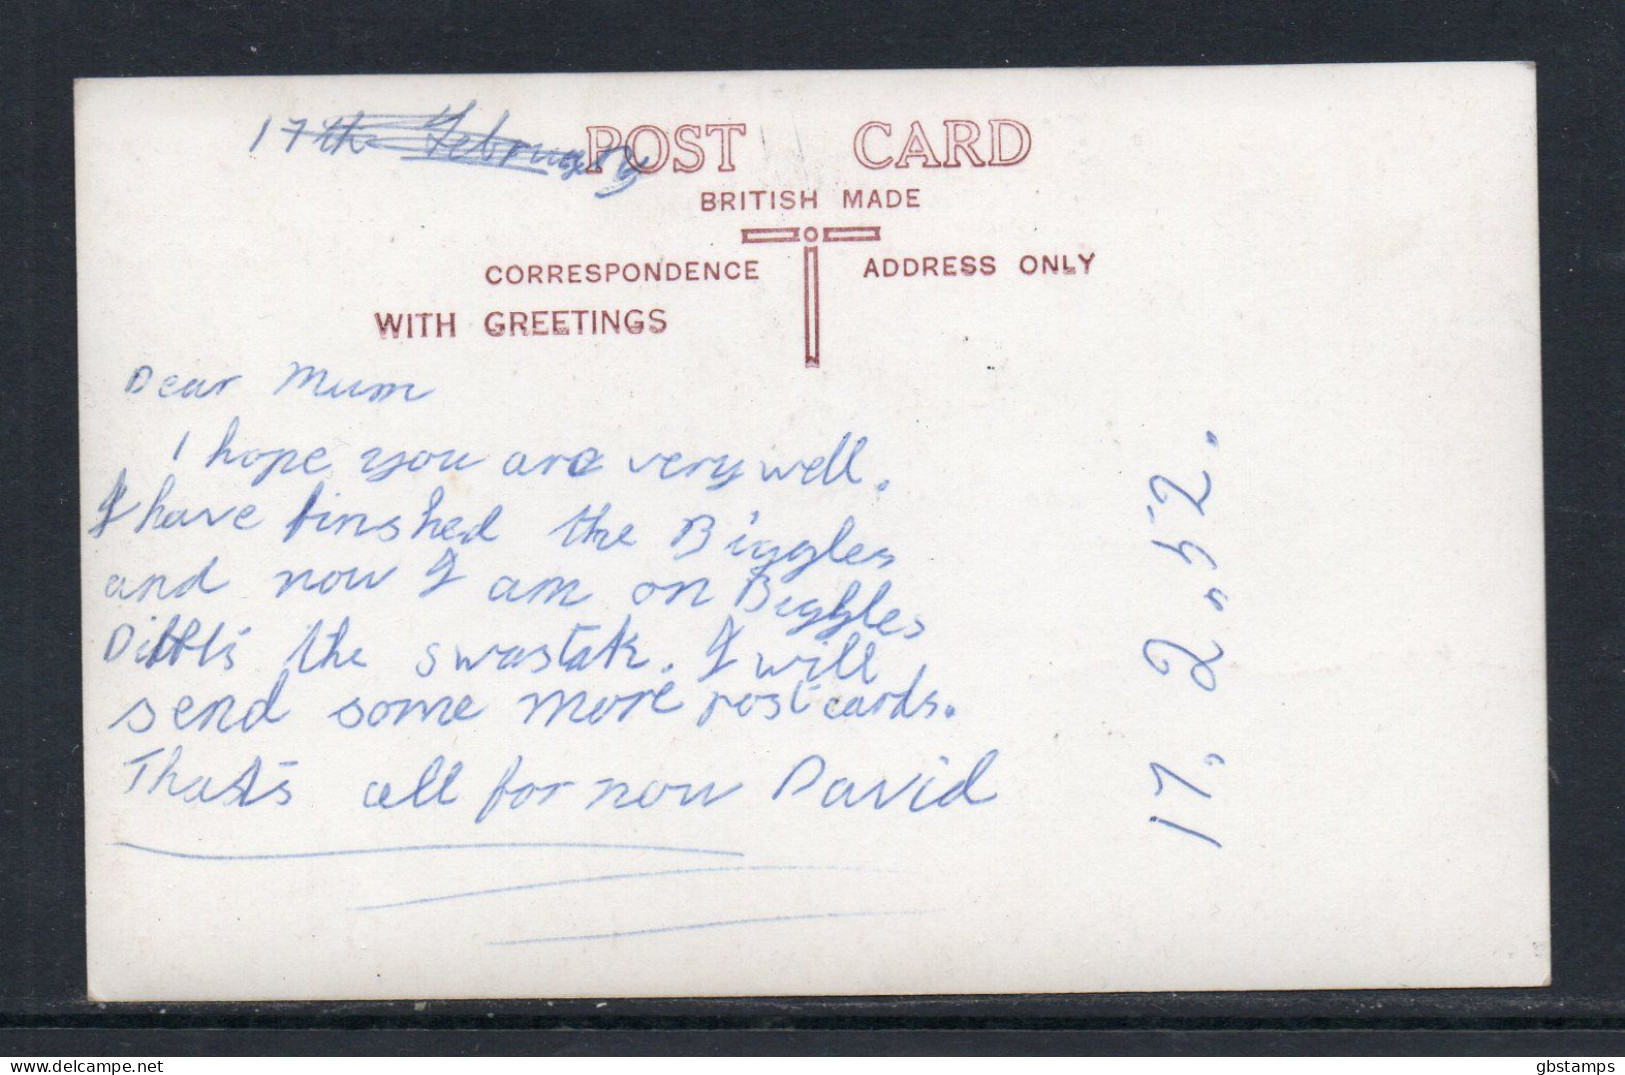 17th February
POST CARD
BRITISH MADE
CORRESPONDENCE ADDRESS ONLY
WITH GREETINGS
Dear Mum
I hope you are very well.
I have finshed the Biggles
and now I am on Biggles
the swastak. I will
send some more post cards.
That's all for now David
17. 2. 52.
delcampe.net
gbstamps